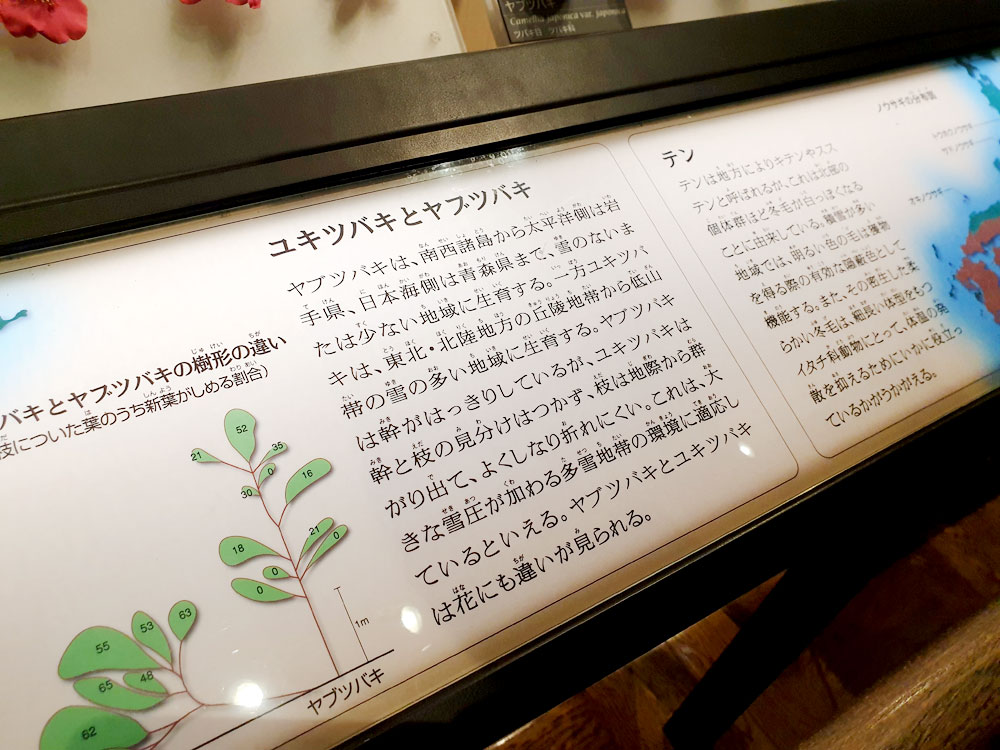 ヤブツバキ
Camellia japonica var. japonica
ツバキ目 ツバキ科
ユキツバキとヤブツバキ
ヤブツバキは、南西諸島から太平洋側は岩
手県、日本海側は青森県まで、雪のないま
たは少ない地域に生育する。一方ユキツバ
キは、東北・北陸地方の丘陵地帯から低山
帯の雪の多い地域に生育する。ヤブツバキ
は幹がはっきりしているが、ユキツバキは
幹と枝の見分けはつかず、枝は地際から群
がり出て、よくしなり折れにくい。これは、大
きな雪圧が加わる多雪地帯の環境に適応し
ているといえる。ヤブツバキとユキツバキ
は花にも違いが見られる。
バキとヤブツバキの樹形の違い
枝についた葉のうち新葉がしめる割合)
52
21
35
0
30
16
21
0
18
0
0
1m
63
53
55
48
65
62
ヤブツバキ
テン
テンは地方によりキテンやスス
テンと呼ばれるが、これは北部の
個体群ほど冬毛が白っぽくなる
ことに由来している。積雪が多い
地域では、明るい色の毛は獲物
を得る際の有効な隠蔽色として
機能する。また、その密生した柔
らかい冬毛は、細長い体型をもつ
イタチ科動物にとって、体温の発
散を抑えるためにいかに役立っ
ているかがうかがえる。
ノウサギの分布図
トウホクノウサギ
サドノウサギ
オキノウサギ